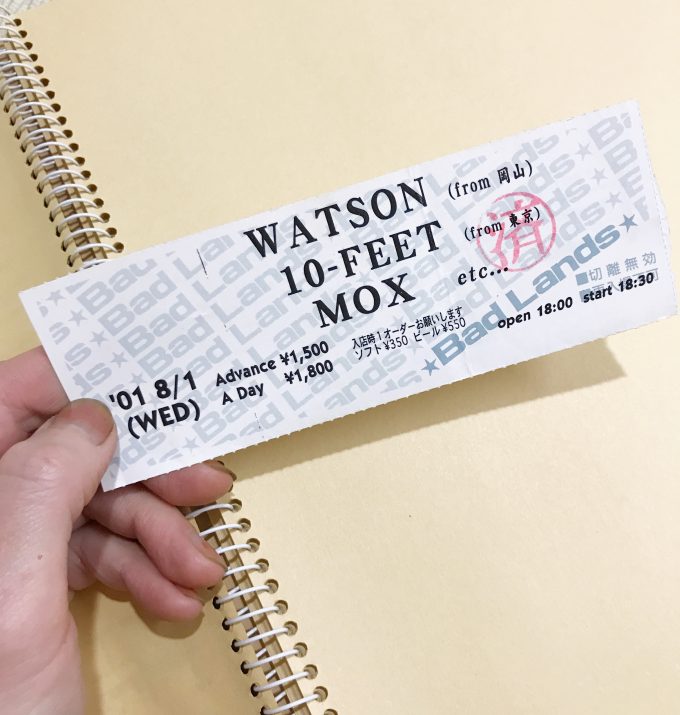 WATSON (from 岡山)
10-FEET (from 東京)
MOX etc...
'01 8/1
(WED)
Advance ¥1,500
A Day ¥1,800
入店時1オーダーお願いします
ソフト¥350 ビール¥550
open 18:00 start 18:30
★Bad Lands★
済
切離無効